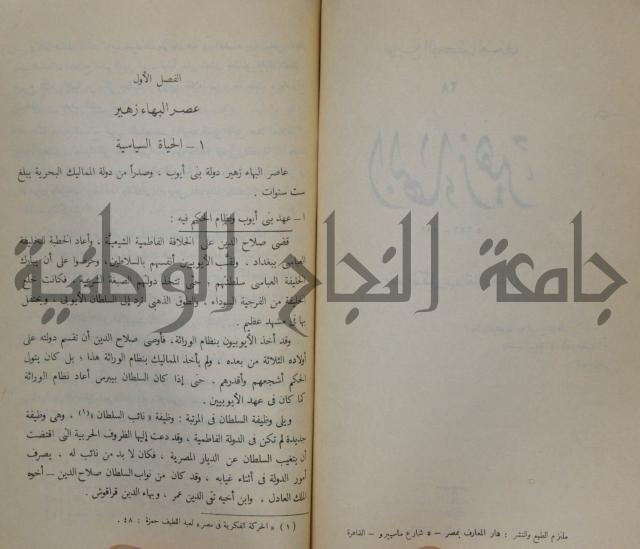 ملتزم الطبع والنشر : دار المعارف بمصر – ٥ شارع ماسبيرو – القاهرة
الفصل الأول
عصر البهاء زهير
١ – الحياة السياسية
عاصر البهاء زهير دولة بنى أيوب ، وصدراً من دولة المماليك البحرية يبلغ
ست سنوات .
ا – عهد بنى أيوب ونظام الحكم فيه :
قضى صلاح الدين على الخلافة الفاطمية الشيعية ، وأعاد الخطبة للخليفة
العباسى ببغداد . ولقب الأيوبيون أنفسهم بالسلاطين وحرصوا على أن يبارك
الخليفة العباسى سلطنتهم حتى تتخذ دولتهم الصبغة الشرعية فكانت خلع
الخليفة من الفرجية السوداء ، والطوق الذهبى ترد إلى السلطان الأيوبى ، ويحتفل
بها فى مشهد عظيم .
وقد أخذ الأيوبيون بنظام الوراثة ، فأوصى صلاح الدين أن تقسم دولته على
أولاده الثلاثة من بعده ، ولم يأخذ المماليك بنظام الوراثة هذا ؛ بل كان يتولى
الحكم أشجعهم وأقدرهم . حتى إذا كان السلطان بيبرس أعاد نظام الوراثة
كما كان فى عهد الأيوبيين .
ويلى وظيفة السلطان فى المرتبة : وظيفة « نائب السلطان » (١) ، وهى وظيفة
جديدة لم تكن فى الدولة الفاطمية ، وقد دعت إليها الظروف الحربية التى اقتضت
بتغيب السلطان عن الديار المصرية ، فكان لا بد من نائب له ، يصرف
أمور الدولة فى أثناء غيابه . وقد كان من نواب السلطان صلاح الدين – أخوه
الملك العادل ، وابن أخيه تقى الدين عمر ، وبهاء الدين قراقوش .
(١) « الحركة الفكرية فى مصر » لعبد اللطيف حمزة : ٤٨ .
جامعة النجاح الوطنية